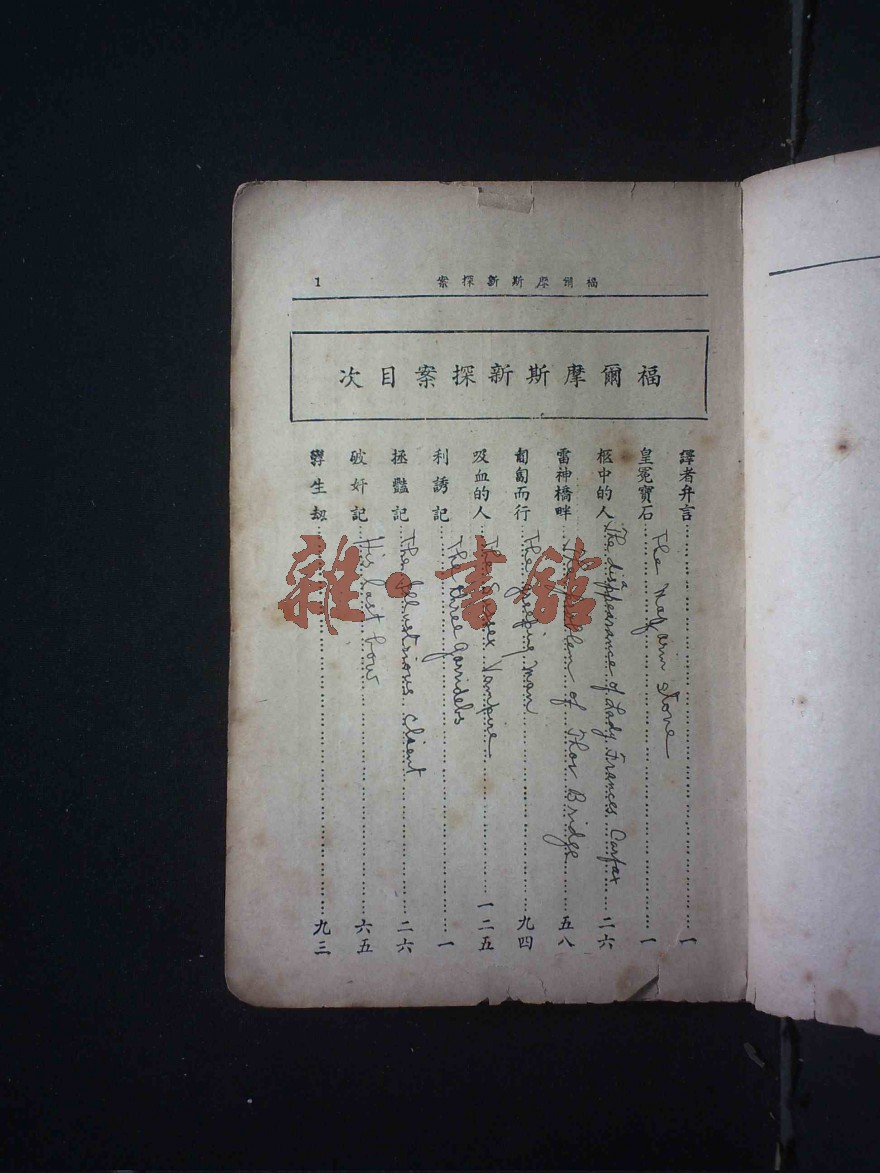 福爾摩斯新探案
1
福爾摩斯新探案目次
譯者弁言……一
皇冕寶石……一
The Mazarin stone
柩中的人……二六
The disappearance of Lady Frances Carfax
雷神橋畔……五八
The Problem of Thor Bridge
匍匐而行……九四
The Creeping man
吸血的人……一二五
The Sussex Vampire
利誘記……一
The three Garridebs
拯豔記……二六
The Illustrious client
破奸記……六五
His last bow
孿生劫……九三
雜·書館